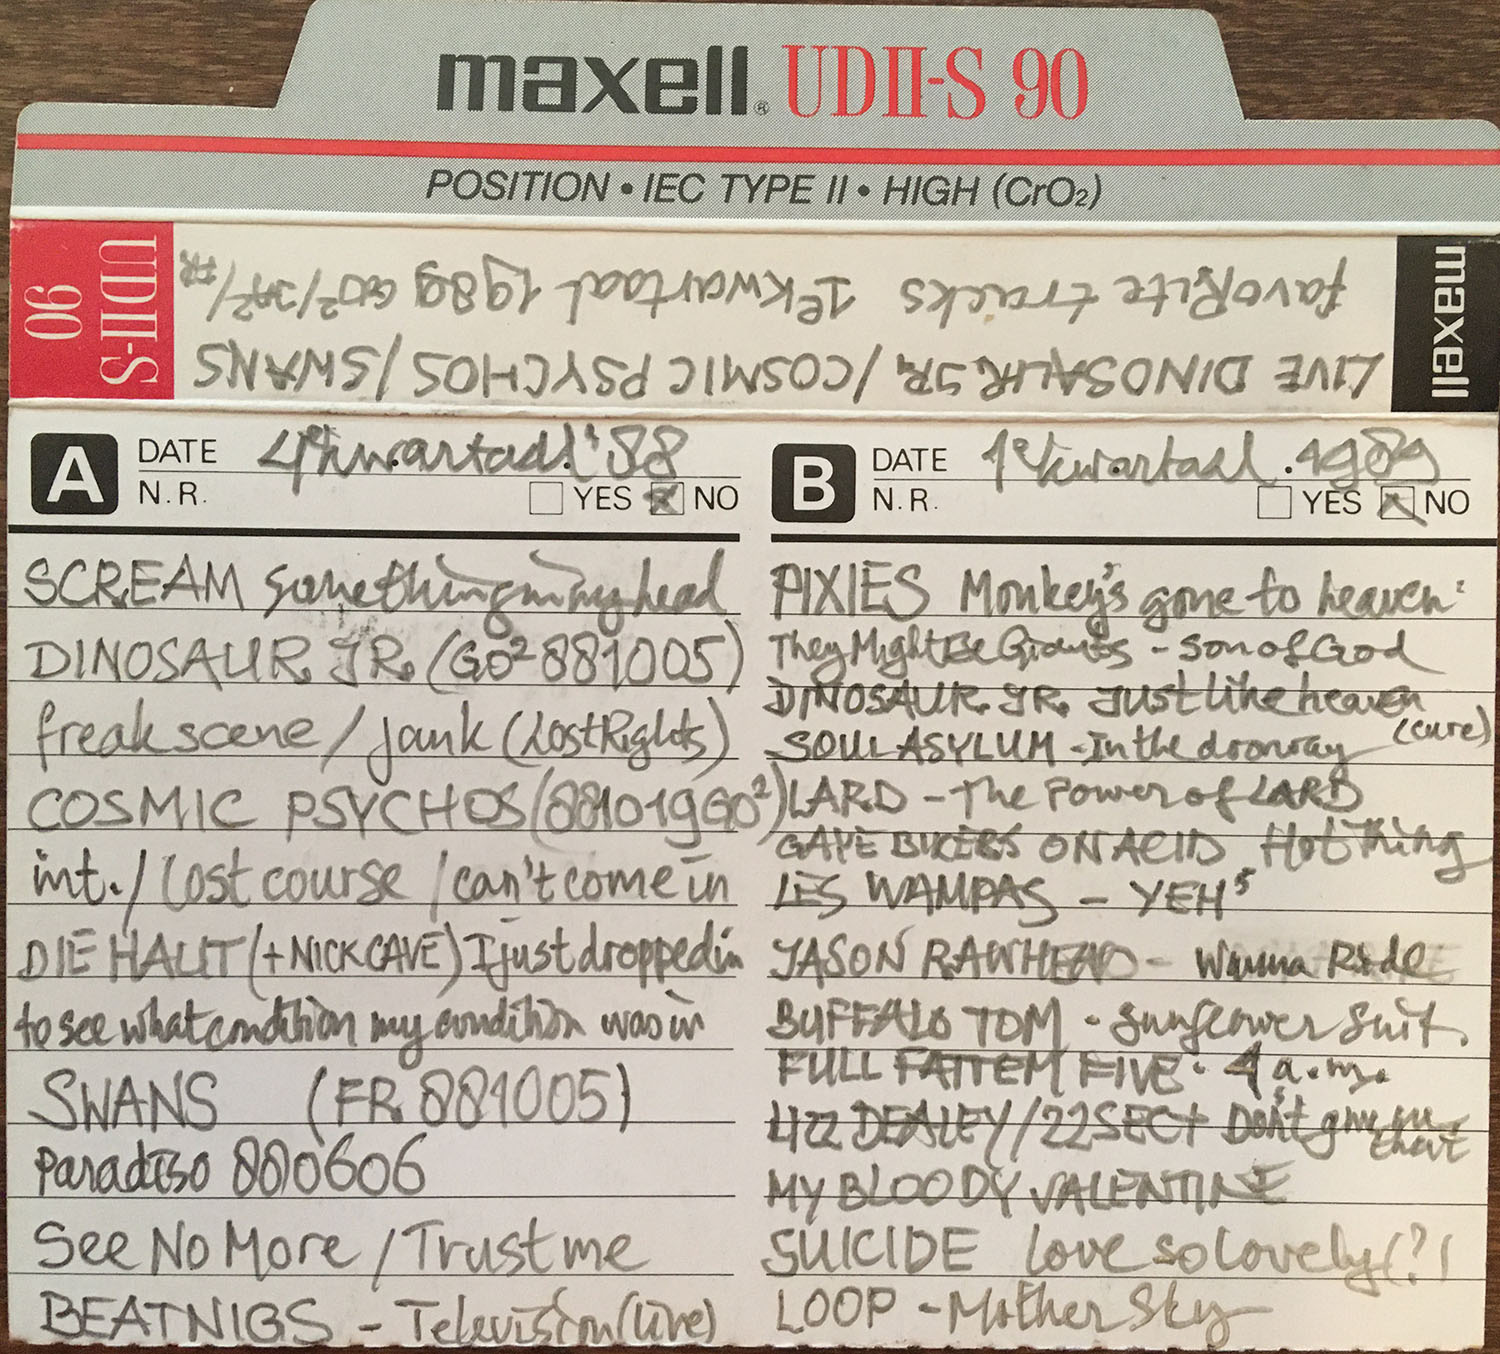 maxell® UDII-S 90
POSITION • IEC TYPE II • HIGH (CrO2)
UDII-S 90
maxell
LIVE DINOSAUR JR./COSMIC PSYCHOS/SWANS
favoRite tracks 1e kwartaal 1989 GO²/3A²/FR
A
DATE 4e kwartaal '88
N.R. YES NO
SCREAM something in my head
DINOSAUR JR. (GO² 881005)
freak scene / jank (LostRights)
COSMIC PSYCHOS (881019 GO²)
int. / Lost course / can't come in
DIE HAUT (+ NICK CAVE) I just dropped in
to see what condition my condition was in
SWANS (FR 881005)
Paradiso 880606
See No More / Trust me
BEATNIGS - Television (live)
B
DATE 1e kwartaal. 1989
N.R. YES NO
PIXIES Monkey's gone to heaven
They Might Be Giants - son of God
DINOSAUR JR. Just like heaven
(cure)
SOUL ASYLUM - In the dronway
LARD - The Power of LARD
GAYE BIKERS ON ACID Hot Thing
LES WAMPAS - YEH⁵
JASON RAWHEAD - Wanna Ride
BUFFALO TOM - Sunflower Suit.
FULL FATTEM FIVE - 4 a.m.
LIZZ DEALEY/22SECT Don't give me that
MY BLOODY VALENTINE
SUICIDE love so lovely (?)
LOOP - Mother Sky